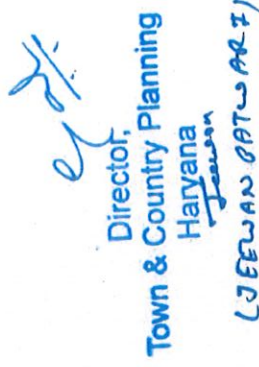 Director,
Town & Country Planning
Haryana
Jeewan
(JEEWAN PATWARI)